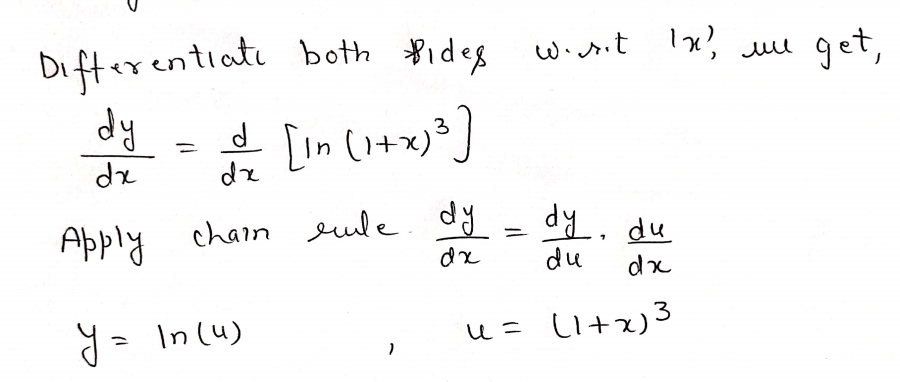 Differentiate both sides w.r.t 'x', we get,
dy/dx = d/dx [ln (1+x)³]
Apply chain rule. dy/dx = dy/du . du/dx
y = ln(u) , u = (1+x)³